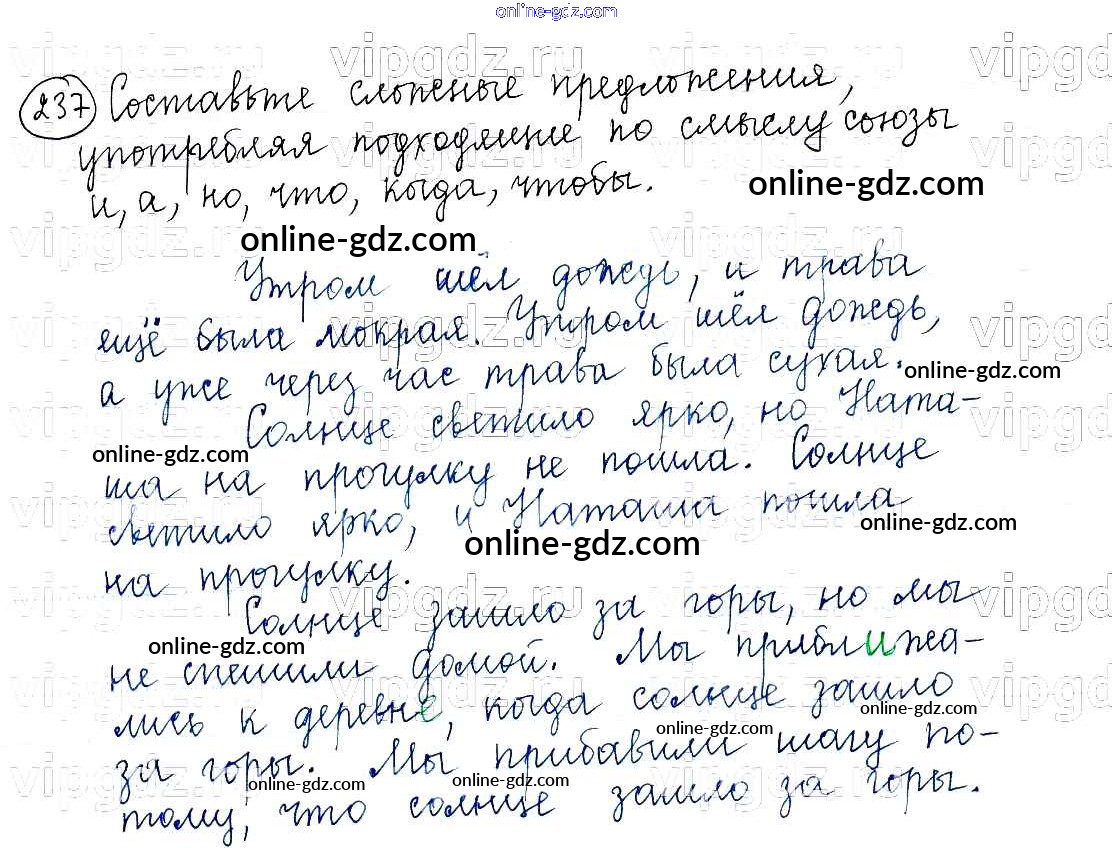 online-gdz.com
237 Составьте сложные предложения,
употребляя подходящие по смыслу союзы
и, а, но, что, когда, чтобы.
online-gdz.com
online-gdz.com
Утром шёл дождь, и трава
ещё была мокрая. Утром шёл дождь,
а уже через час трава была сухая.
online-gdz.com
Солнце светило ярко, но Ната-
online-gdz.com
ша на прогулку не пошла. Солнце
светило ярко, и Наташа пошла
online-gdz.com
online-gdz.com
на прогулку.
Солнце зашло за горы, но мы
online-gdz.com
не спешили домой. Мы приближа-
лись к деревне, когда солнце зашло
online-gdz.com
online-gdz.com
за горы. Мы прибавили шагу по-
online-gdz.com
online-gdz.com
тому, что солнце зашло за горы.
vipgdz.ru